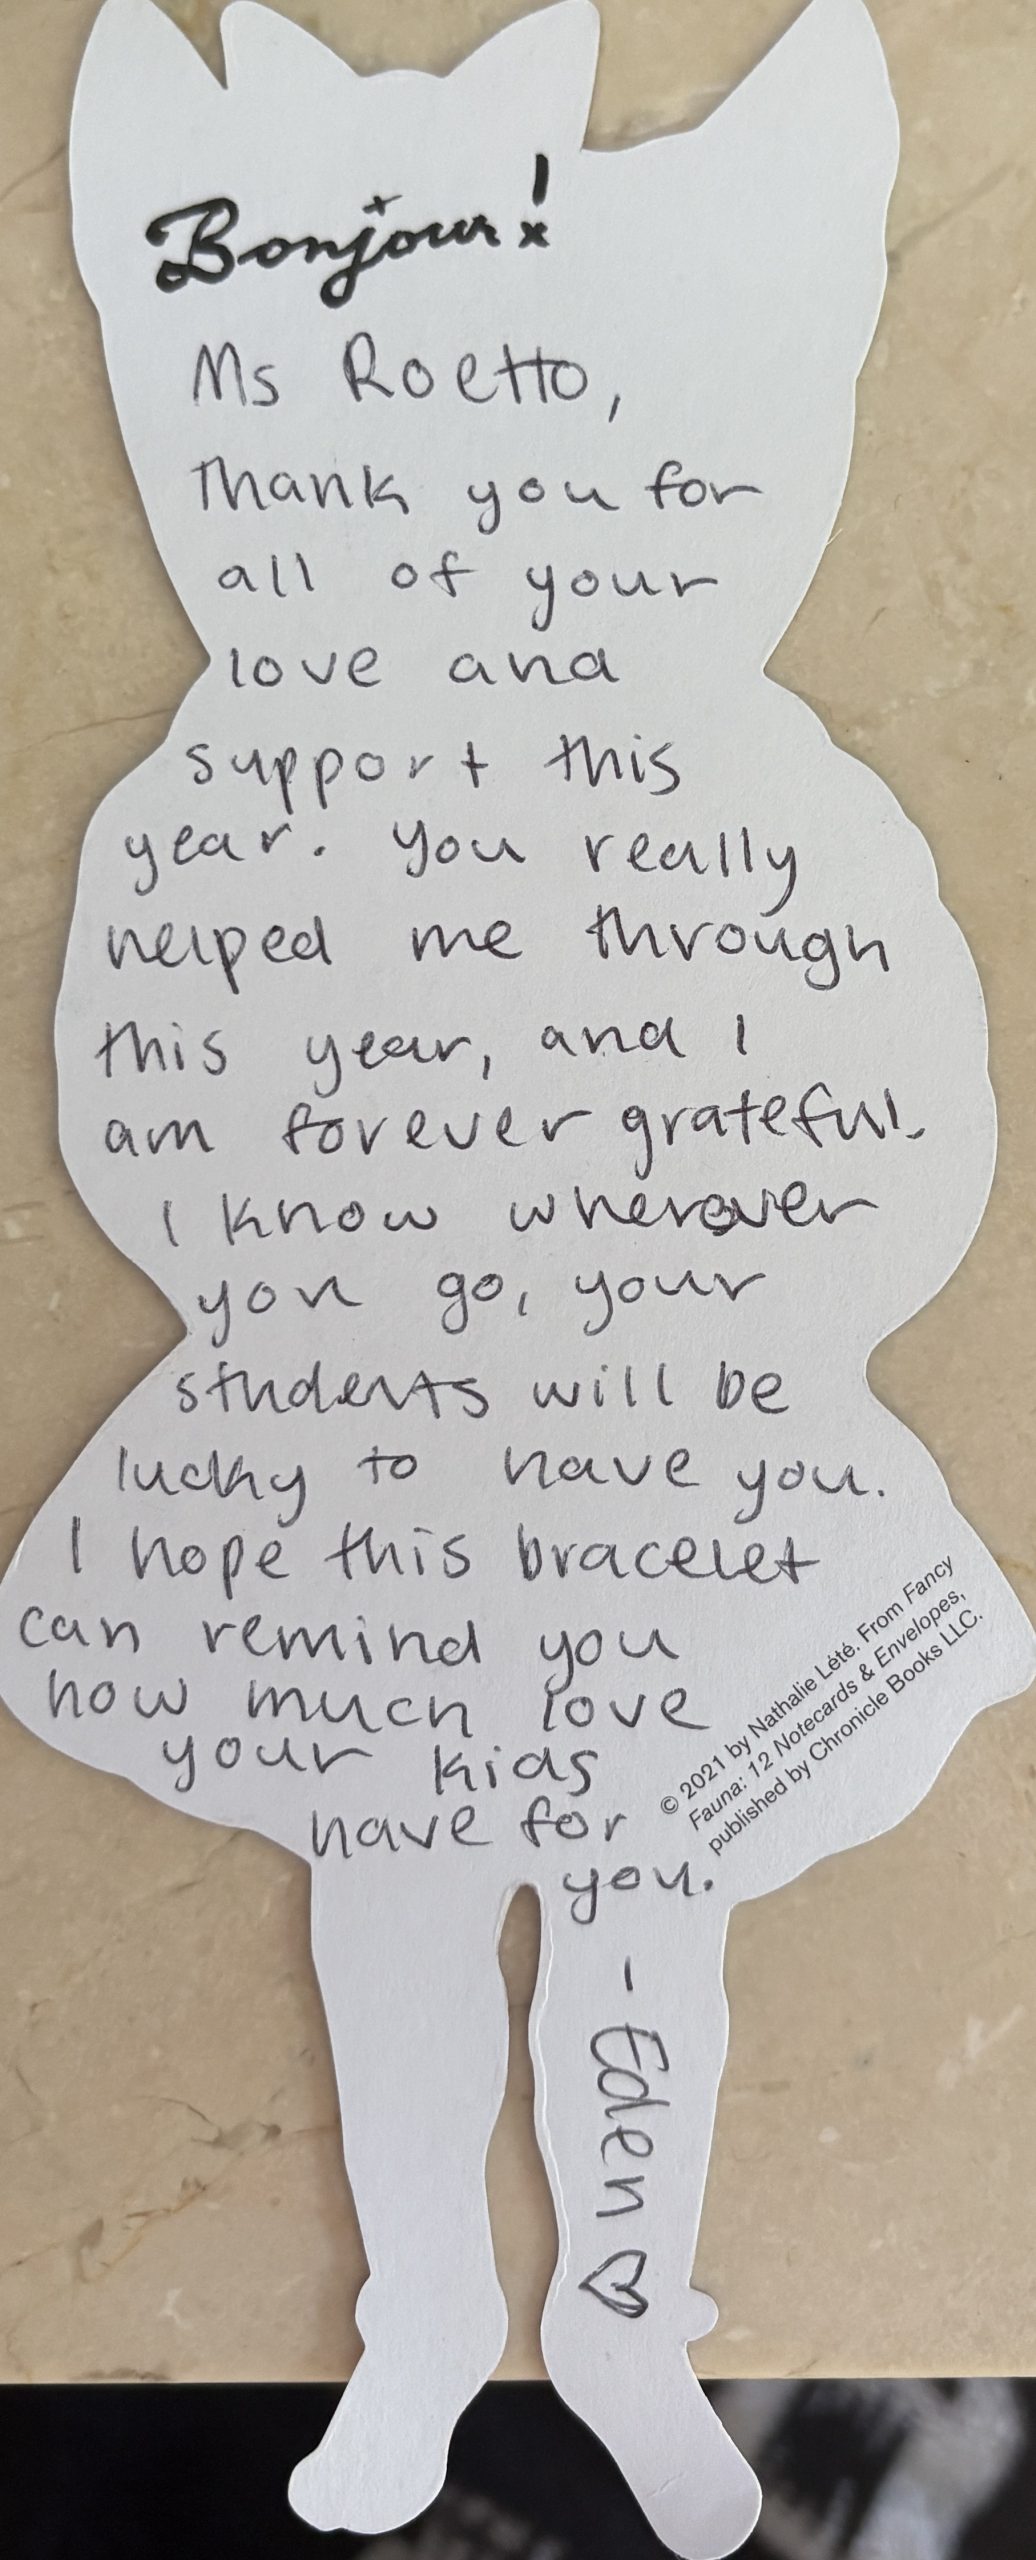 Bonjour!
Ms Roetto,
Thank you for
all of your
love and
support this
year. You really
helped me through
this year, and I
am forever grateful.
I know wherever
you go, your
students will be
lucky to have you.
I hope this bracelet
can remind you
how much love
your kids
have for
you.
- Eden ♡
© 2021 by Nathalie Lété. From Fancy
Fauna: 12 Notecards & Envelopes,
published by Chronicle Books LLC.